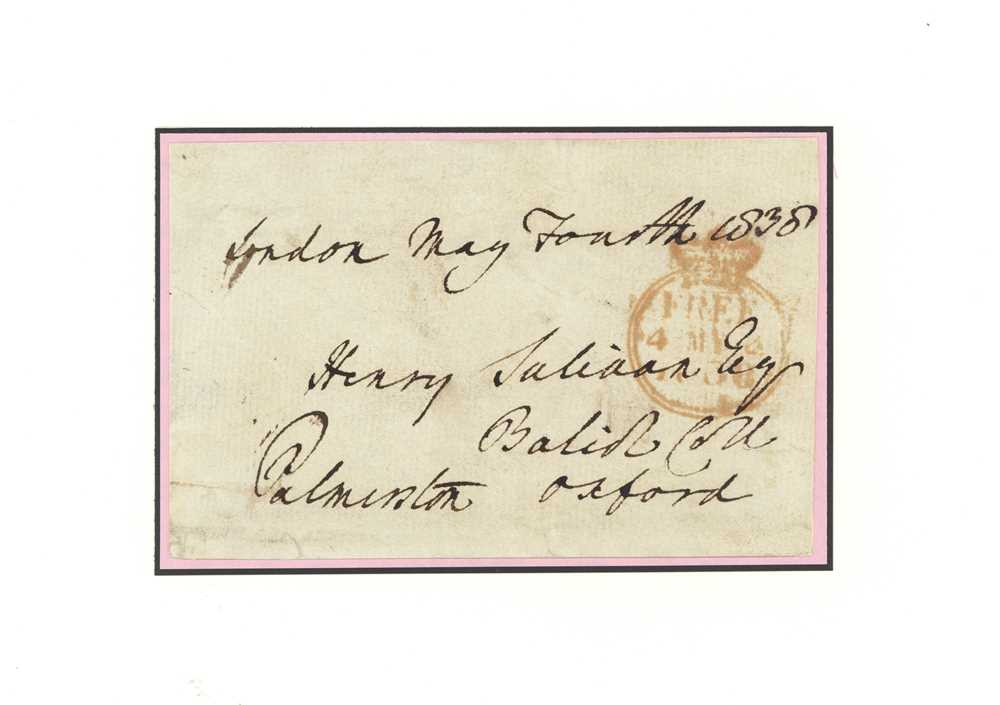 London May Fourth 1838
FREE
4 MY 4
1838
Henry Sulivan Esq
Baliol Coll
Palmerston Oxford